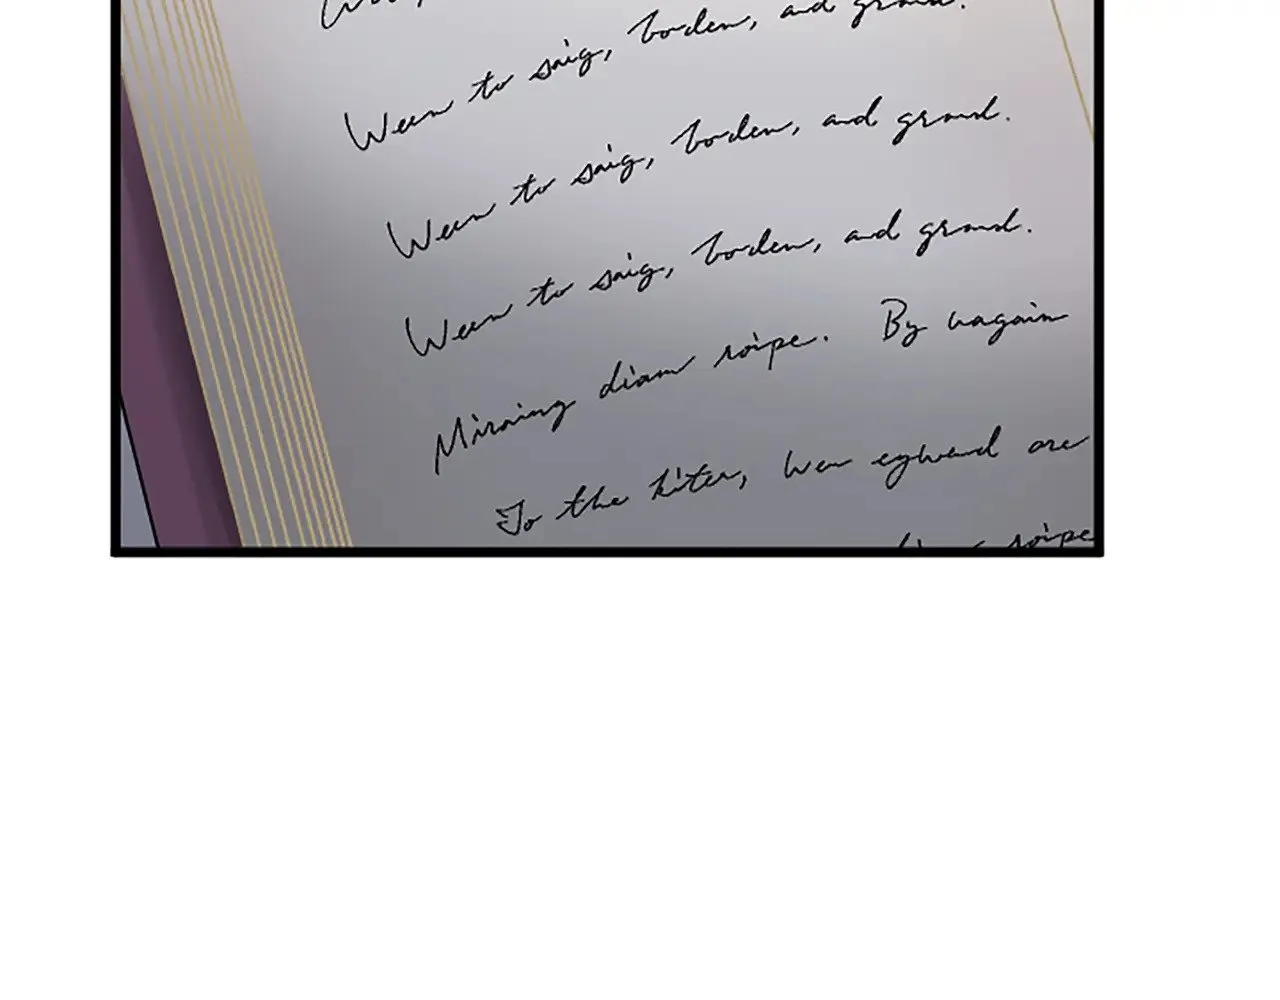 Ween to saig, boden, and grand.
Ween to saig, boden, and grand.
Ween to saig, boden, and grand.
Mirning diam roipe. By vagain
To the kiter, wen eyward are
roipe